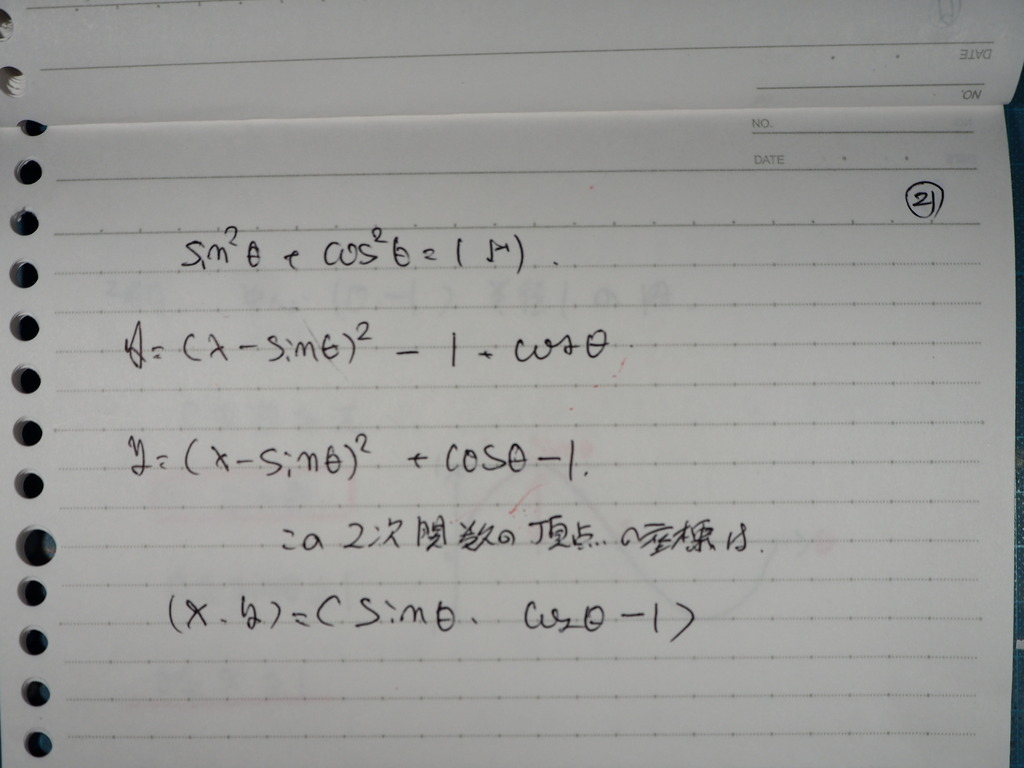 DATE
NO.
NO.
DATE
㉑
sin²θ + cos²θ = 1 より.
y = (x - sinθ)² - 1 + cosθ
y = (x - sinθ)² + cosθ - 1.
この2次関数の頂点の座標は.
(x, y) = (sinθ, cosθ - 1)